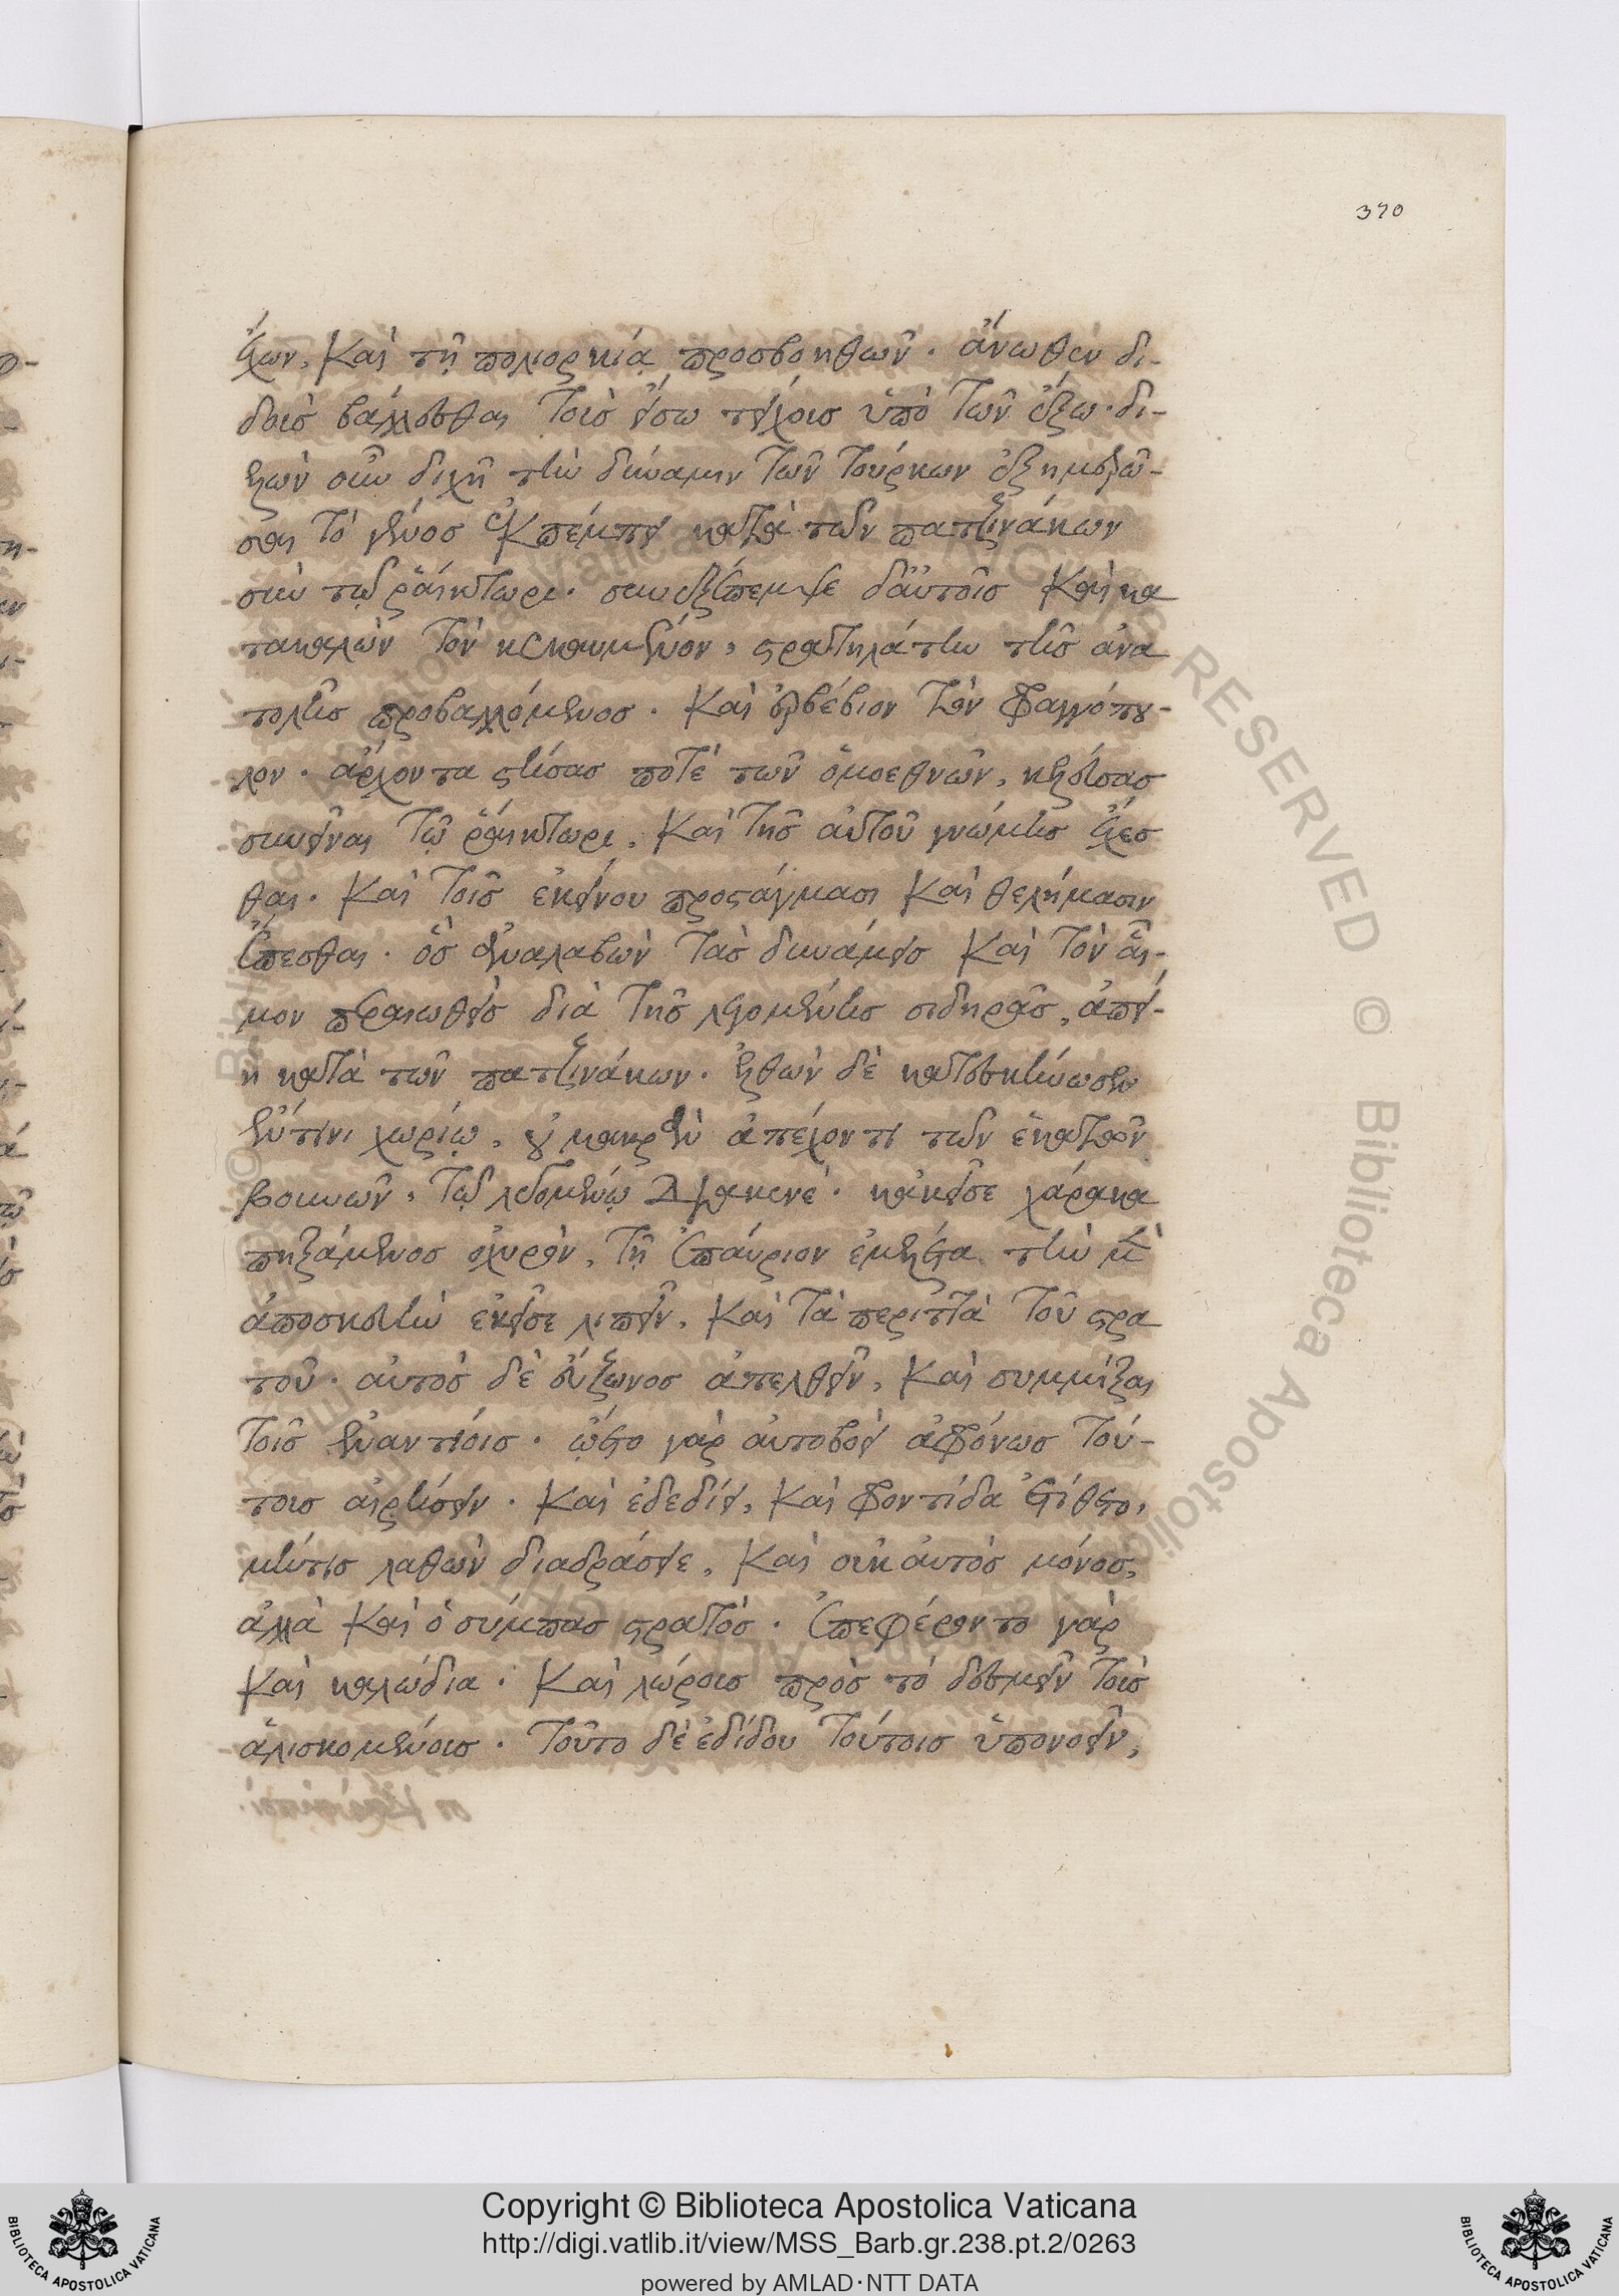 370
ἔχων, καὶ τῇ πολιορκίᾳ προσβοηθῶν. ἄνωθεν δε-
δοισ βάλλεσθαι τοῖσ ἔσω τείχοισ ὑπὸ τῶν ἔξω. δι-
σθαι τὸ γένοσ ἐκπέμπει κατὰ τῶν πατζινάκων
σὺν τῷ ῥαίκτωρι. συνεξέπεμψε δ' αὐτοῖσ καὶ κα
τακαλὼν τὸν κεκαυμένον, στρατηλάτην τῆσ ἀνα
τολῆσ προβαλλόμενοσ. καὶ ἐρβέβιον τὸν φραγγόπου-
λον. ἄρχοντα στήσασ ποτὲ τῶν ὁμοεθνῶν, κελεύσασ
συνεῖναι τῷ ῥαίκτωρι, καὶ τῆσ αὐτοῦ γνώμησ ἔχεσ
θαι. καὶ τοῖσ ἐκείνου προστάγμασι καὶ θελήμασιν
ἕπεσθαι. ὃσ ἀναλαβὼν τὰσ δυνάμεισ καὶ τὸν αἷ-
μον περαιωθεὶσ διὰ τῆσ λεγομένησ σιδηρᾶσ, ἀπῄ-
ει κατὰ τῶν πατζινάκων. ἐλθὼν δὲ κατεσκήνωσεν
ἔν τινι χωρίῳ, οὐ μακρὰν ἀπέχοντι τῶν ἑκατὸν
βουνῶν, τῷ λεγομένῳ διακενέ. κἀκεῖσε χάρακα
πηξάμενοσ ὀχυρὸν, τῇ ἐπαύριον ἐμελέτα τὴν μὲν
ἀποσκευὴν ἐκεῖσε λιπεῖν, καὶ τὰ περιττὰ τοῦ στρα
τοῦ. αὐτὸσ δὲ εὔζωνοσ ἀπελθεῖν, καὶ συμμίξαι
τοῖσ ἐναντίοισ. ᾤετο γὰρ αὐτοβοεὶ ἀφρόνωσ τού-
τουσ αἱρήσειν. καὶ ἐδεδίει, καὶ φροντίδα ἐτίθετο,
μή τισ λαθὼν διαδράσειε, καὶ οὐκ αὐτὸσ μόνοσ,
ἀλλὰ καὶ ὁ σύμπασ στρατόσ. ἐπεφέροντο γὰρ
καὶ καλώδια. καὶ λώρουσ πρὸσ τὸ δεσμεῖν τοὺσ
ἁλισκομένουσ. τοῦτο δὲ ἐδίδου τούτοισ ὑπονοεῖν,
Copyright © Biblioteca Apostolica Vaticana
http://digi.vatlib.it/view/MSS_Barb.gr.238.pt.2/0263
powered by AMLAD·NTT DATA